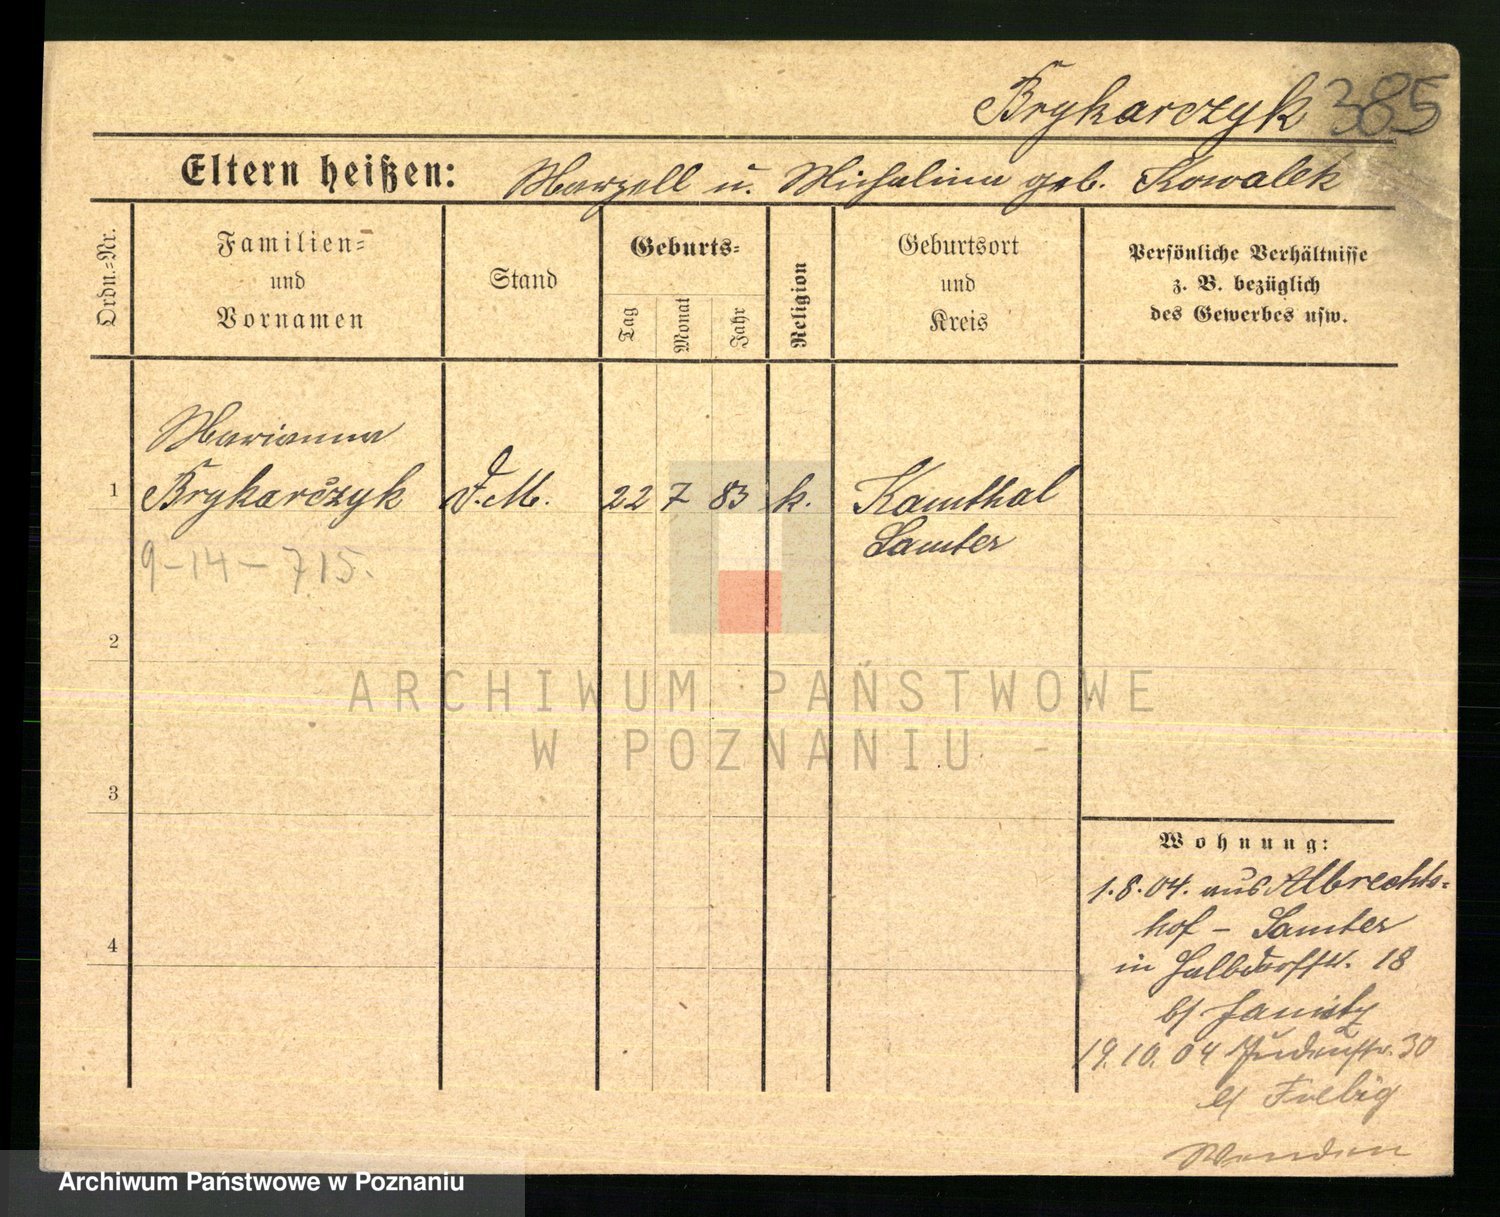 Brykarczyk 385
Eltern heißen: Marzell u. Michalina geb. Kowalek
Ordn.-Nr.
Familien-
und
Vornamen
Stand
Geburts-
Tag
Monat
Jahr
Religion
Geburtsort
und
Kreis
Persönliche Verhältnisse
z. B. bezüglich
des Gewerbes usw.
Marianna
1 Brykarczyk D.M. 22 7 83 k. Kamthal
Samter
9-14-715.
2
ARCHIWUM PAŃSTWOWE
W POZNANIU -
3
Wohnung:
1.8.04. aus Albrechts-
hof - Samter
in Halbdorfstr. 18
b/
4
19.10.04 Judenstr. 30
Wenden
Archiwum Państwowe w Poznaniu